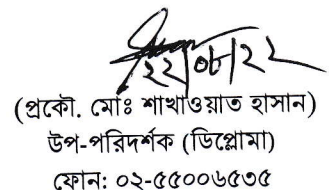 ২২/০৮/২২
(প্রকৌ. মোঃ শাখাওয়াত হাসান)
উপ-পরিদর্শক (ডিপ্লোমা)
ফোন: ০২-৫৫০০৬৫৩৫